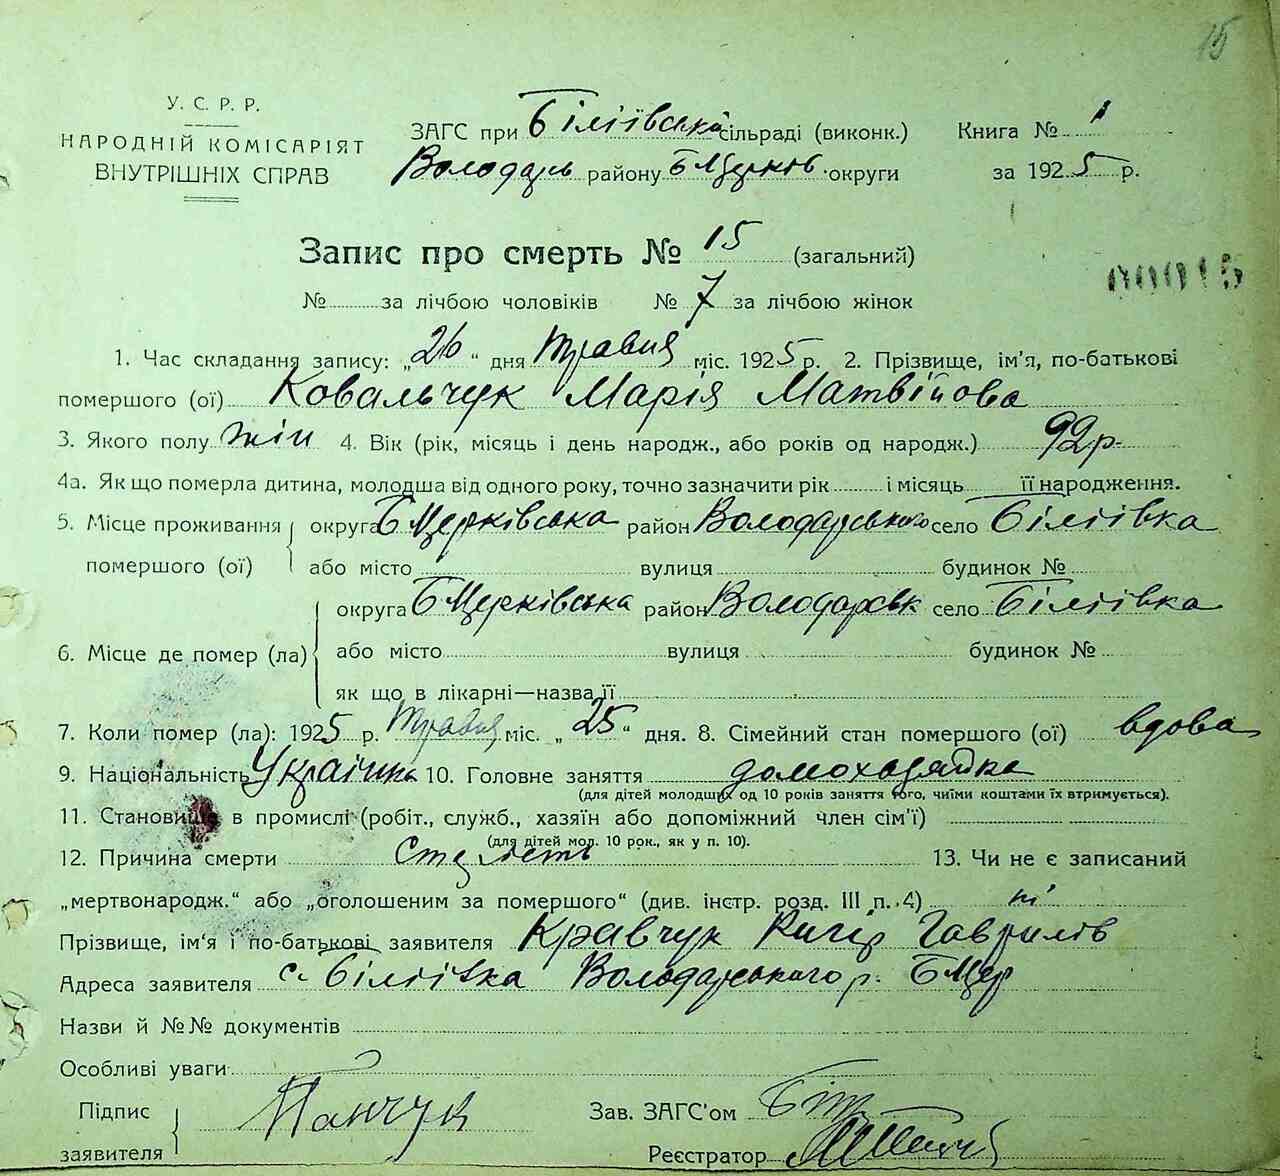 15
У. С. Р. Р.
НАРОДНІЙ КОМІСАРІЯТ
ВНУТРІШНІХ СПРАВ
ЗАГС при Біліївській сільраді (виконк.) Книга № 1
Володарь району БЦерков округи за 1925 р.
Запис про смерть № 15 (загальний)
00015
№ за лічбою чоловіків № 7 за лічбою жінок
1. Час складання запису: „26“ дня травня міс. 1925 р. 2. Прізвище, ім'я, по-батькові
помершого (ої) Ковальчук Марія Матвійова
3. Якого полу жін 4. Вік (рік, місяць і день народж., або років од народж.) 92 р.
4а. Як що померла дитина, молодша від одного року, точно зазначити рік і місяць її народження.
5. Місце проживання округа БЦерківська район Володарського село Біліївка
помершого (ої) або місто вулиця будинок №
округа БЦерківська район Володарськ село Біліївка
6. Місце де помер (ла) або місто вулиця будинок №
як що в лікарні—назва її
7. Коли помер (ла): 1925 р. травня міс. „25“ дня. 8. Сімейний стан помершого (ої) вдова
9. Національність Українка 10. Головне заняття домохазяйка
(для дітей молодших од 10 років заняття того, чиїми коштами їх втримується).
11. Становище в промислі (робіт., служб., хазяїн або допоміжний член сім'ї)
(для дітей мол. 10 рок., як у п. 10).
12. Причина смерти 13. Чи не є записаний
„мертвонародж.“ або „оголошеним за помершого“ (див. інстр. розд. III п. 4) ні
Прізвище, ім'я і по-батькові заявителя Кравчук Гаврилів
Адреса заявителя с. Біліївка Володарського р. БЦер
Назви й №№ документів
Особливі уваги
Підпис Зав. ЗАГС'ом
заявителя Реєстратор